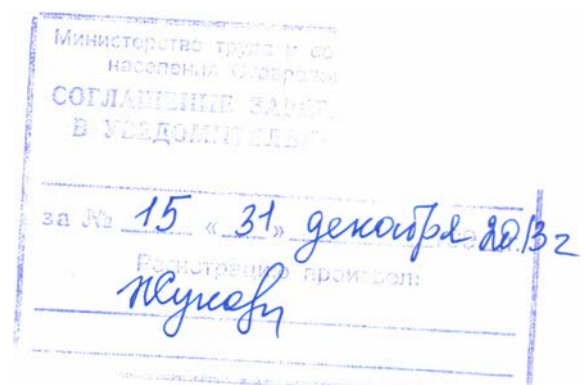 Министерство труда и со
населения Ставропол
СОГЛАШЕНИЕ ЗАРЕГ
В УВЕДОМИТЕЛЬ
за № 15 «31» декабря 2013 г
Регистрацию произвел: